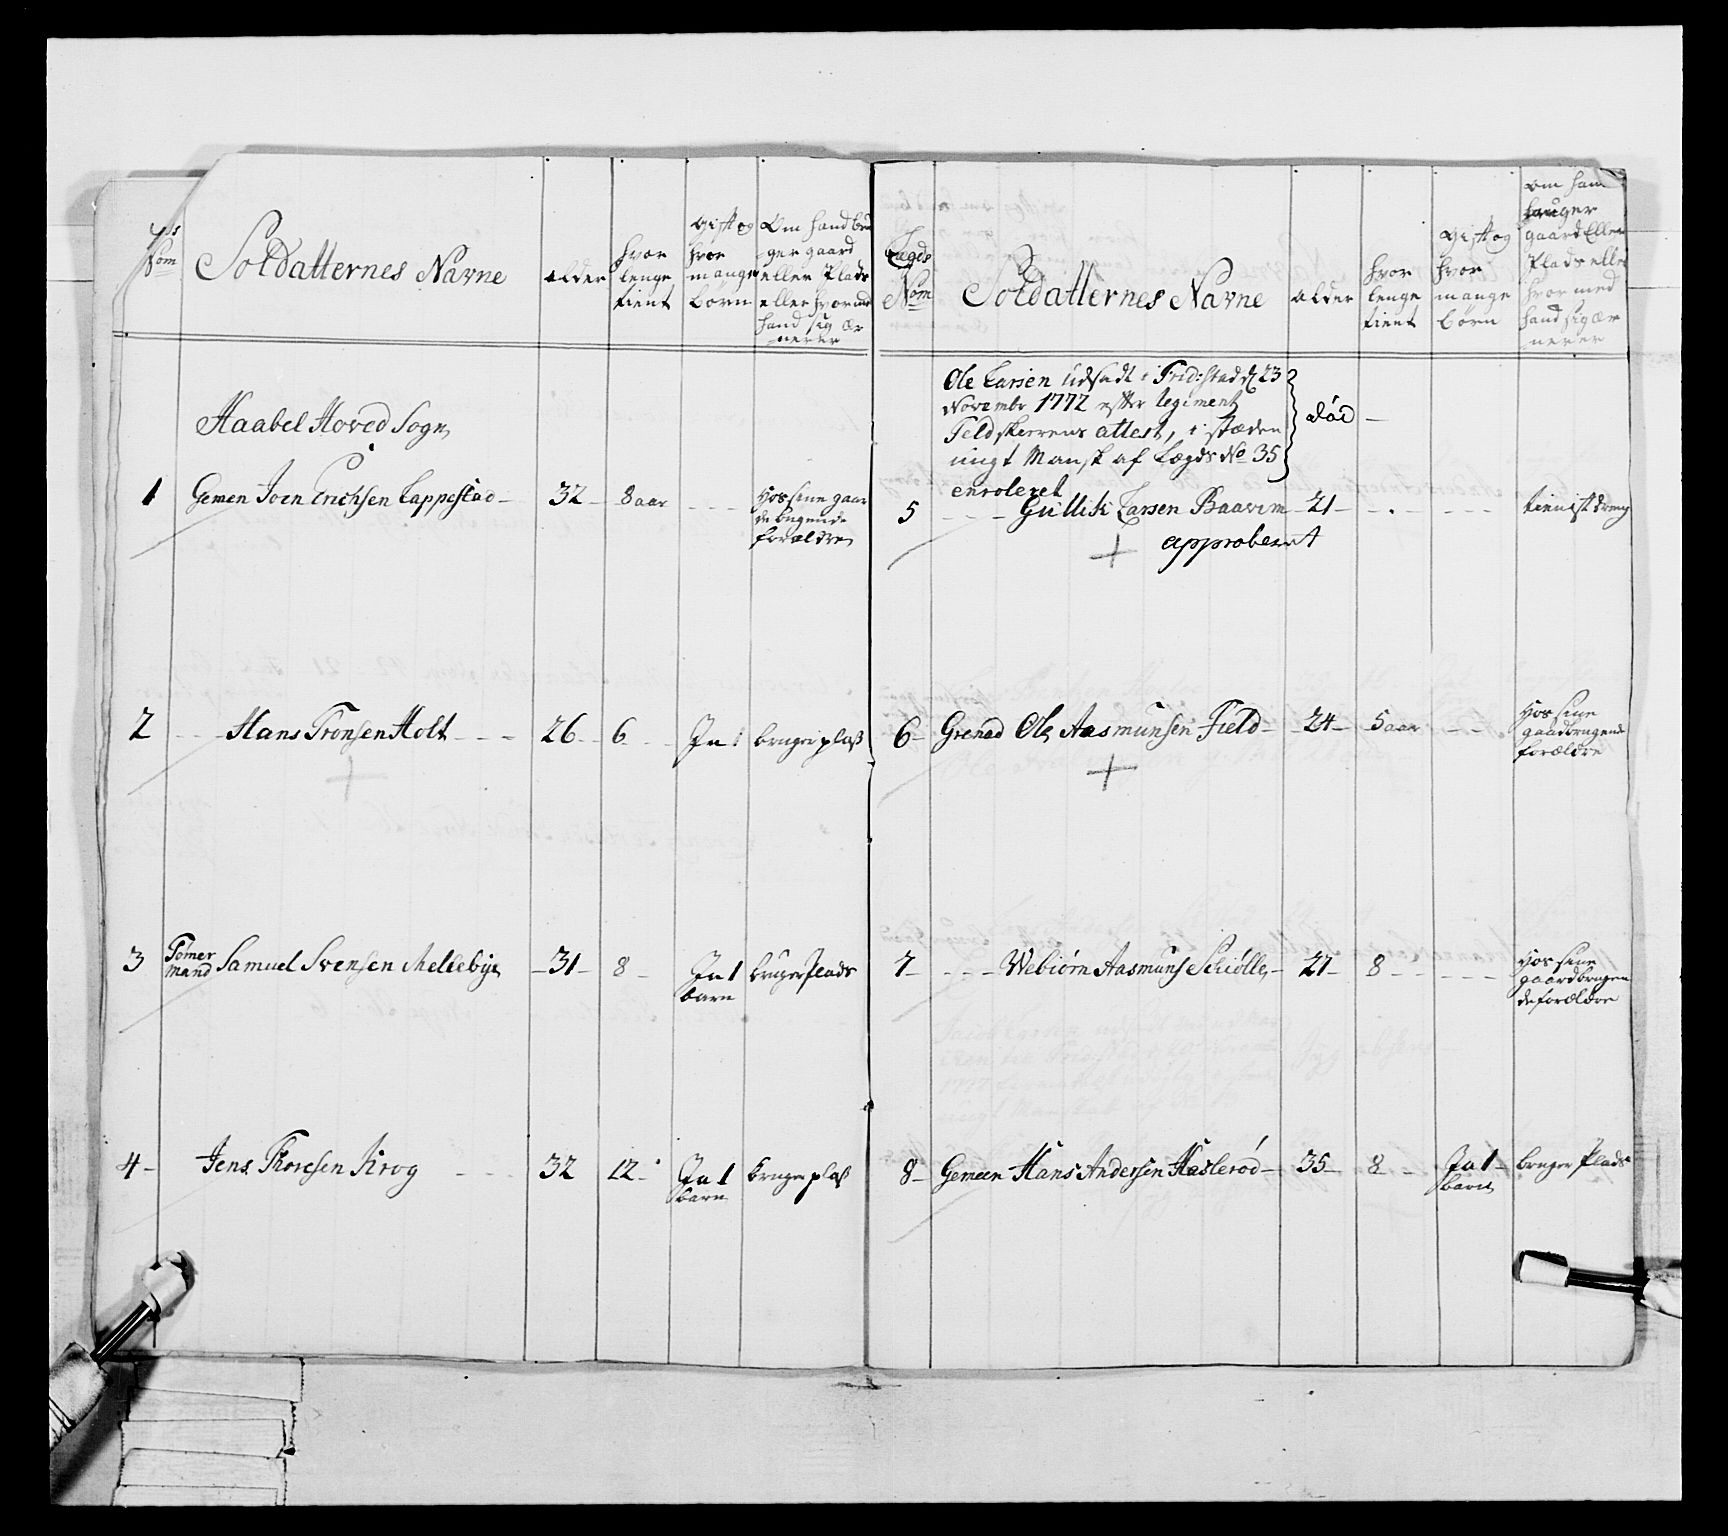 Nom
Soldatternes Navne
alder
hvor
lenge
tient
gift og
hvor
mange
børn
Om hand bru
ger gaard
eller Plads
eller hvormed
hand sig ær
nerer
Haabel Hoved Sogn
1 Gemen Joen Erichsen Lappestad - 32 - 8 aar - - - Hos sine gaar
de brugende
forældre
2 - - - Hans Tronsen Holt - - - 26 - 6 - - Ja 1 bruger plass
3 Tømer
mand Samuel Svensen Mellebye - 31 - 8 - Ja 1
barn
bruger Plads
4 - Jens Thoresen Krog - - 32 12 - Ja 1
barn
bruger plass
Lægds
Nom
Soldatternes Navne
alder
hvor
lenge
tient
gift og
hvor
mange
børn
om hand
bruger
gaard Eller
Plads eller
hvor med
hand sig ær
nerer
Ole Larsen udsadt i Frid:stad d 23
Novembr 1772 efter regiment
Feldskerrens attest, i stæden
ungt Mansk af Lægds No 35
enroleret
død -
5 - - - Gullik Larsen Baavem - 21 - - - - - - tienist dreng
approberet
6 - Grenad Ole Aasmunsen Field - 24 - 5 aar - - Hos sine
gaardbrugende
forældre
7 - - - - Webiørn Aasmuns Schiølle - 27 - 8 - - - - - Hos sine
gaardbrugen
de forældre
8 - Gemeen Hans Andersen Haslerød - 35 - 8 - Ja 1 -
barn
bruger Plads